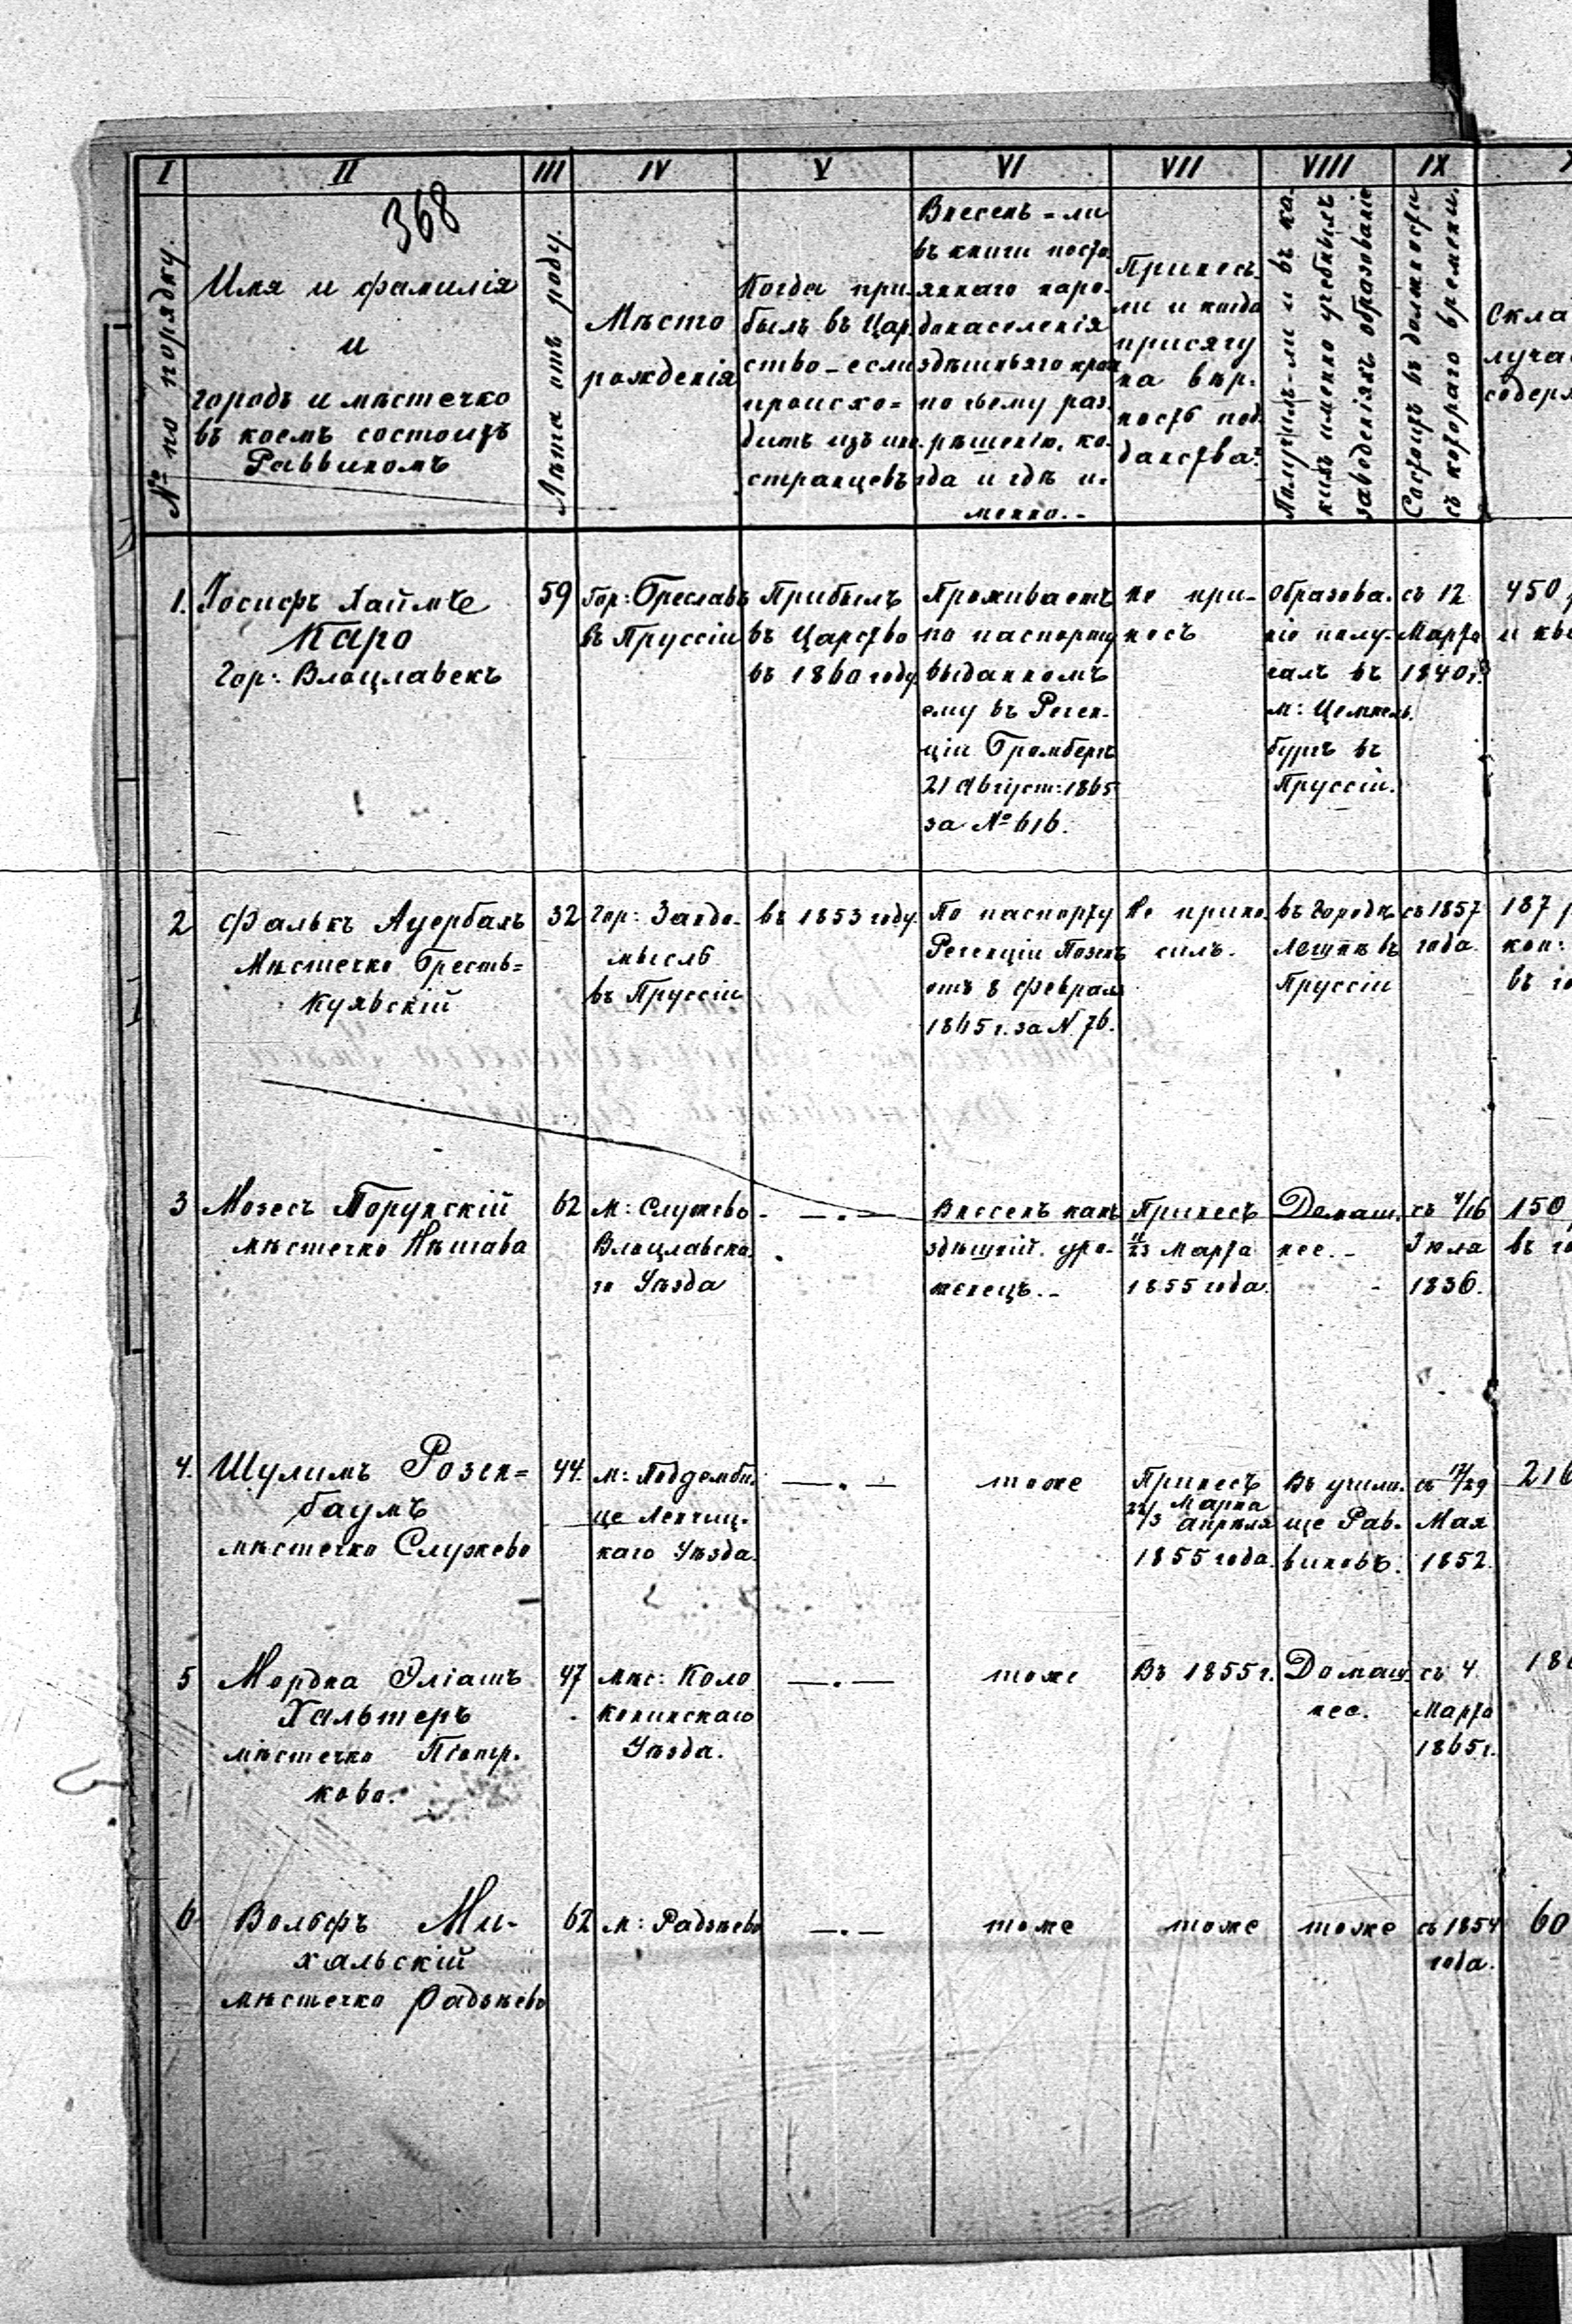 I II III IV V VI VII VIII IX
368
№ по порядку.
Имя и фамилія
и
городъ и мѣстечко
въ коемъ состоитъ
Раввиномъ
Лѣта отъ роду.
Мѣсто
рожденія
Когда при-
былъ въ Цар-
ство - если
происхо=
дитъ изъ ино-
странцевъ
Внесенъ = ли
въ книги посто-
яннаго наро-
донаселенія
здѣшняго края
по чьему раз-
рѣшенію, ко-
гда и гдѣ и-
менно. -
Принесъ
ли и когда
присягу
на вѣр-
ность под-
данства?
Получилъ-ли и въ ка-
кихъ именно учебныхъ
заведеніяхъ образованіе
Состоитъ въ должности
съ котораго времени.
Скла
луча
содерж
1.
Іосифъ Хаймъ
Каро
Гор: Влоцлавекъ
59
Гор: Бреславъ
въ Пруссіи
Прибылъ
въ Царство
въ 1860 году.
Проживаетъ
по паспорту
выданномъ
ему въ Реген-
ціи Бромбергъ
21 Август: 1865
за № 616.
не при-
несъ
Образова-
ніе полу-
чалъ въ
м: Цемпель-
бургъ въ
Пруссіи.
съ 12
Марта
1840 г.
450
и кв
2
Фалькъ Ауербахъ
Мѣстечко Бресть=
Куявскій
32
Гор: Зандо-
мысль
въ Пруссіи
въ 1853 году.
По паспорту
Регенціи Позенъ
отъ 8 Февраля
1865 г. за N. 76.
Не прино-
силъ.
въ Городѣ
въ
Пруссіи
съ 1857
года.
187
коп:
въ го
3
Мозесъ Торунскій
мѣстечко Нѣшава
62
М: Служево
Влоцлавска-
го Уѣзда
— . —
Внесенъ какъ
здѣшній уро-
женецъ. -
Принесъ
11/23 Марта
1855 года.
Домаш-
нее. -
съ 4/16
Іюля
1836.
150
въ го
4.
Шулимъ Розен=
баумъ
мѣстечко Служево
44.
М: Поддемби-
це Ленчиц-
каго Уѣзда.
— . —
тоже
Принесъ
22/3 Марта
Апрѣля
1855 года.
Въ учили-
ще Рав-
виновъ.
съ 17/29
Мая
1852.
216
5
Мордка Эліашъ
Хальтеръ
мѣстечко Піотр-
ково.
47
Мѣс: Коло
Конинскаго
Уѣзда.
— . —
тоже
Въ 1855 г.
Домаш-
нее.
съ 4
Марта
1865 г.
18
6
Вольфъ Ми-
хальскій
мѣстечко Радзѣево
62
М: Радзѣево
— . —
тоже
тоже
тоже
съ 1854
года.
60